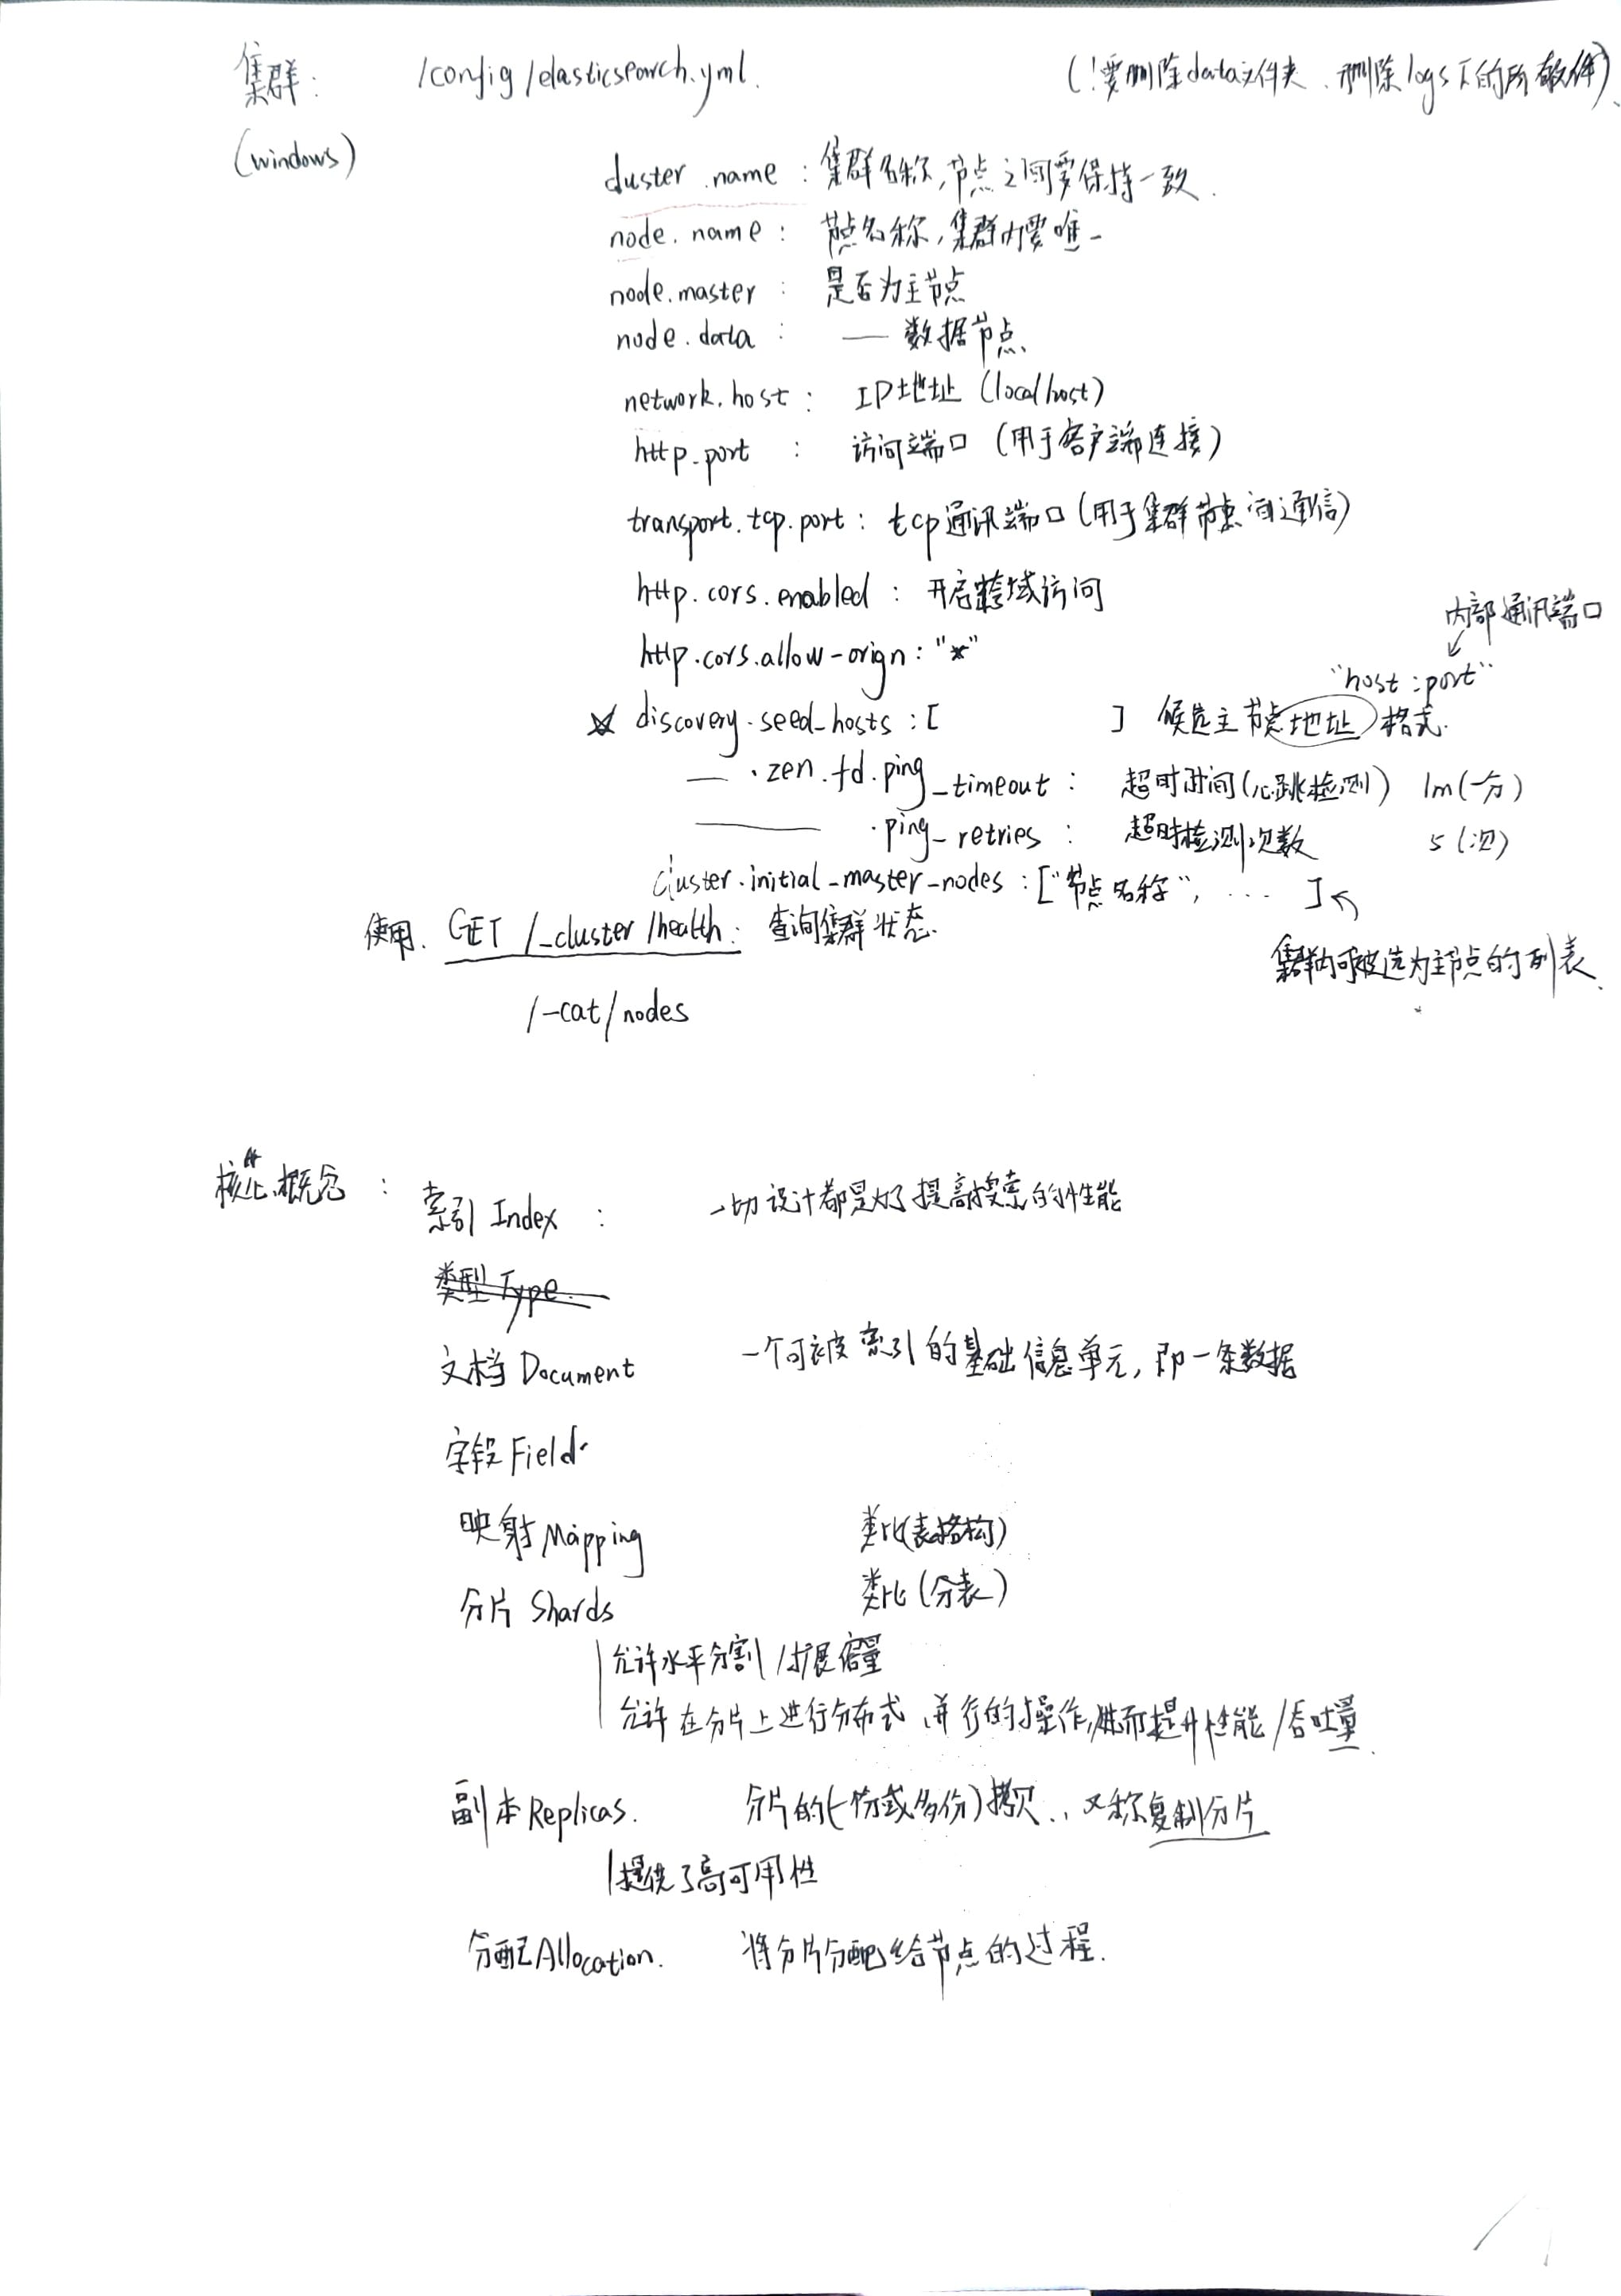 集群: /config/elasticsearch.yml. (!要删除data文件夹、删除logs下的所有文件)
(windows)
cluster.name : 集群名称,节点之间要保持一致.
node.name : 节点名称,集群内要唯一
node.master : 是否为主节点
node.data : — 数据节点
network.host : IP地址 (localhost)
http.port : 访问端口 (用于客户端连接)
transport.tcp.port : tcp通讯端口 (用于集群节点间通信)
http.cors.enabled : 开启跨域访问
内部通讯端口
http.cors.allow-orign : "*"
"host:port"
discovery.seed_hosts : [ ] 候选主节点地址格式.
— .zen.fd.ping_timeout : 超时时间(心跳检测) 1m(一分)
—— .ping_retries : 超时检测次数 5(次)
cluster.initial_master_nodes : ["节点名称", ... ]
使用. GET /_cluster/health : 查询集群状态.
集群内可被选为主节点的列表.
/-cat/nodes
核心概念 : 索引 Index : 一切设计都是为了提高搜索的性能
类型 Type.
文档 Document 一个可被索引的基础信息单元, 即一条数据
字段 Field
映射 Mapping 类比(表结构)
分片 Shards 类比(分表)
允许水平分割/扩展容量
允许在分片上进行分布式、并行的操作,进而提升性能/吞吐量.
副本 Replicas. 分片的(一份或多份)拷贝.. 又称复制分片
提供了高可用性
分配 Allocation. 将分片分配给节点的过程.